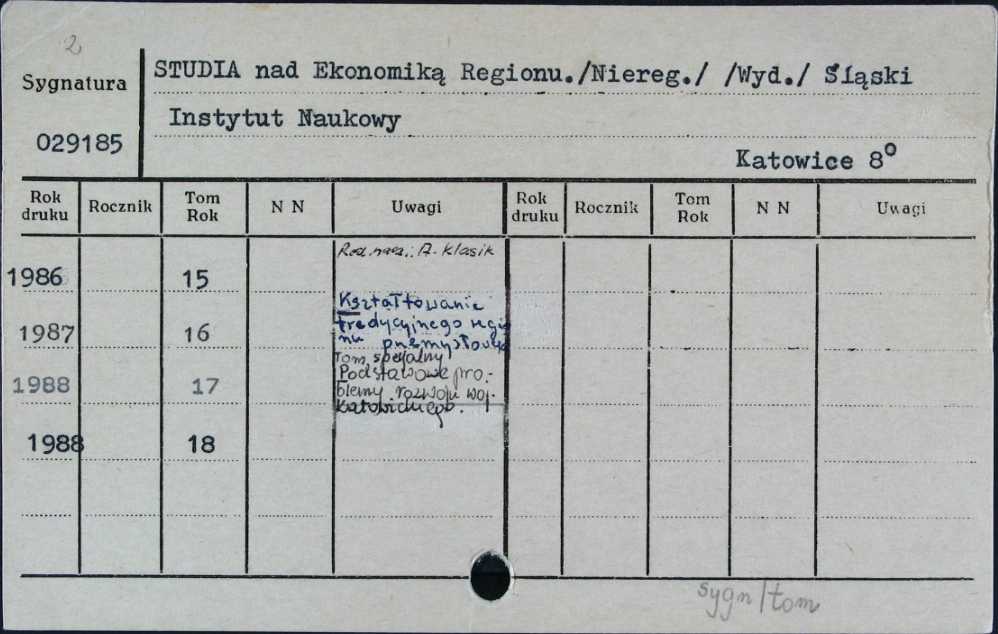 2
Sygnatura
029185
STUDIA nad Ekonomiką Regionu./Niereg./ /Wyd./ Śląski
Instytut Naukowy
Katowice 8°
Rok druku Rocznik Tom Rok N N Uwagi Rok druku Rocznik Tom Rok N N Uwagi
Red. nacz.: A. Klasik
1986 15
Kształtowanie
1987 16 tradycyjnego regio
nu przemysłowego
Tom specjalny
1988 17 Podstawowe pro-
blemy rozwoju woj.
katowickiego.
1988 18
sygn/tom